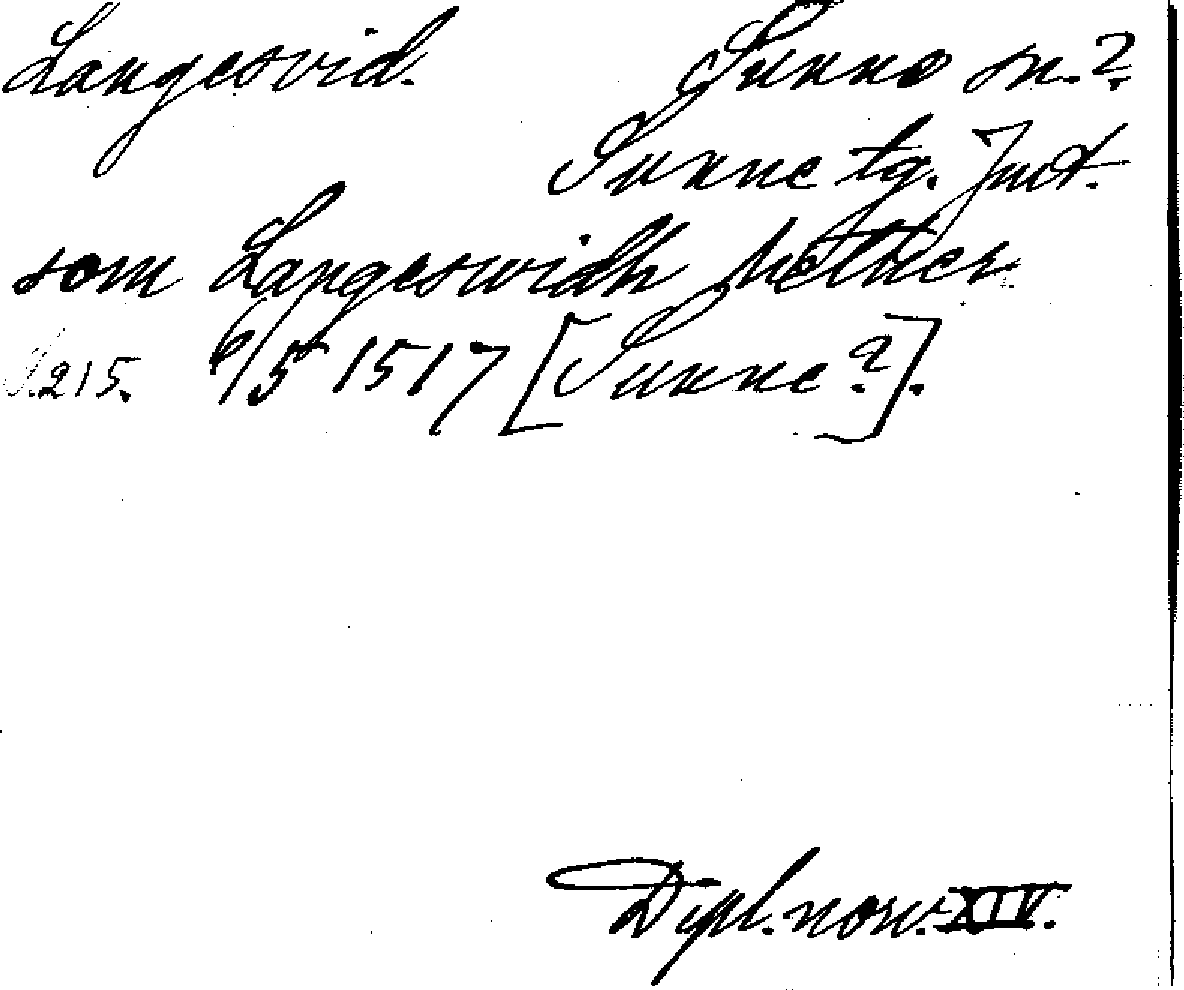 Langesvid. Sunne sn.?
Sunne tg. Jmt.
som Langeswidh hether
S. 215. 6/5 1517 [Sunne?].
Dipl. norv. XIV.